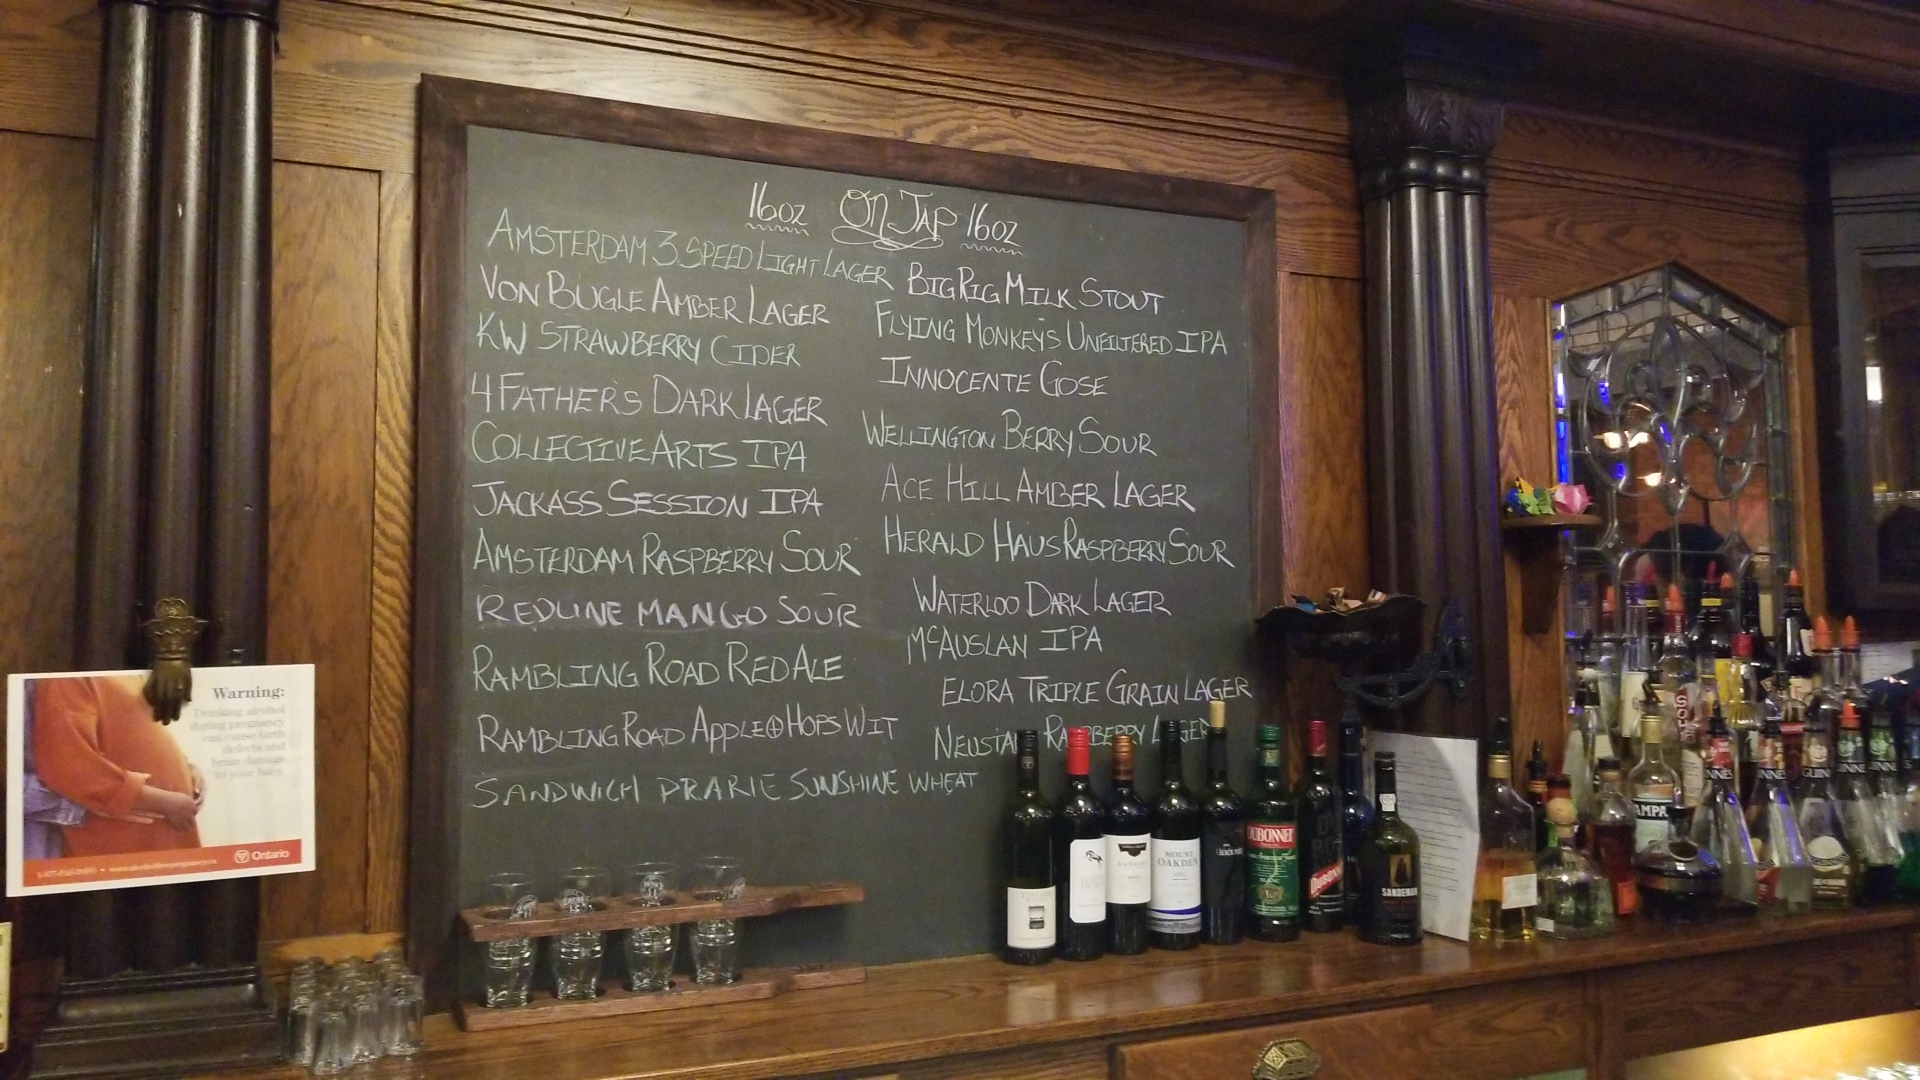 16oz ON TAP 16oz
AMSTERDAM 3 SPEED LIGHT LAGER
VON BUGLE AMBER LAGER
KW STRAWBERRY CIDER
4 FATHER'S DARK LAGER
COLLECTIVE ARTS IPA
JACKASS SESSION IPA
AMSTERDAM RASPBERRY SOUR
REDLINE MANGO SOUR
RAMBLING ROAD RED ALE
RAMBLING ROAD APPLE HOPS WIT
SANDWICH PRARIE SUNSHINE WHEAT
BIG RIG MILK STOUT
FLYING MONKEY'S UNFILTERED IPA
INNOCENTE GOSE
WELLINGTON BERRY SOUR
ACE HILL AMBER LAGER
HERALD HAUS RASPBERRY SOUR
WATERLOO DARK LAGER
McAUSLAN IPA
ELORA TRIPLE GRAIN LAGER
RASPBERRY LAGER
Warning:
Drinking alcohol
during pregnancy
can cause birth
defects and
brain damage
to your baby.
Ontario
MOUNT
OAKDEN
DUBONNET
SANDEMAN